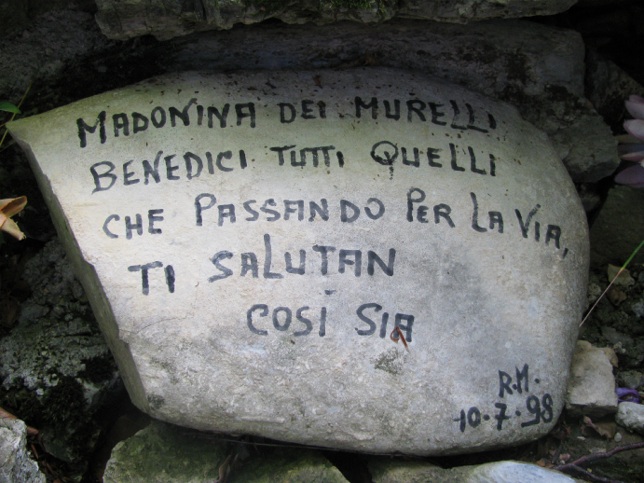 MADONINA DEI MURELLI
BENEDICI TUTTI QUELLI
CHE PASSANDO PER LA VIA,
TI SALUTAN
COSÌ SIA
R.M.
10.7.98